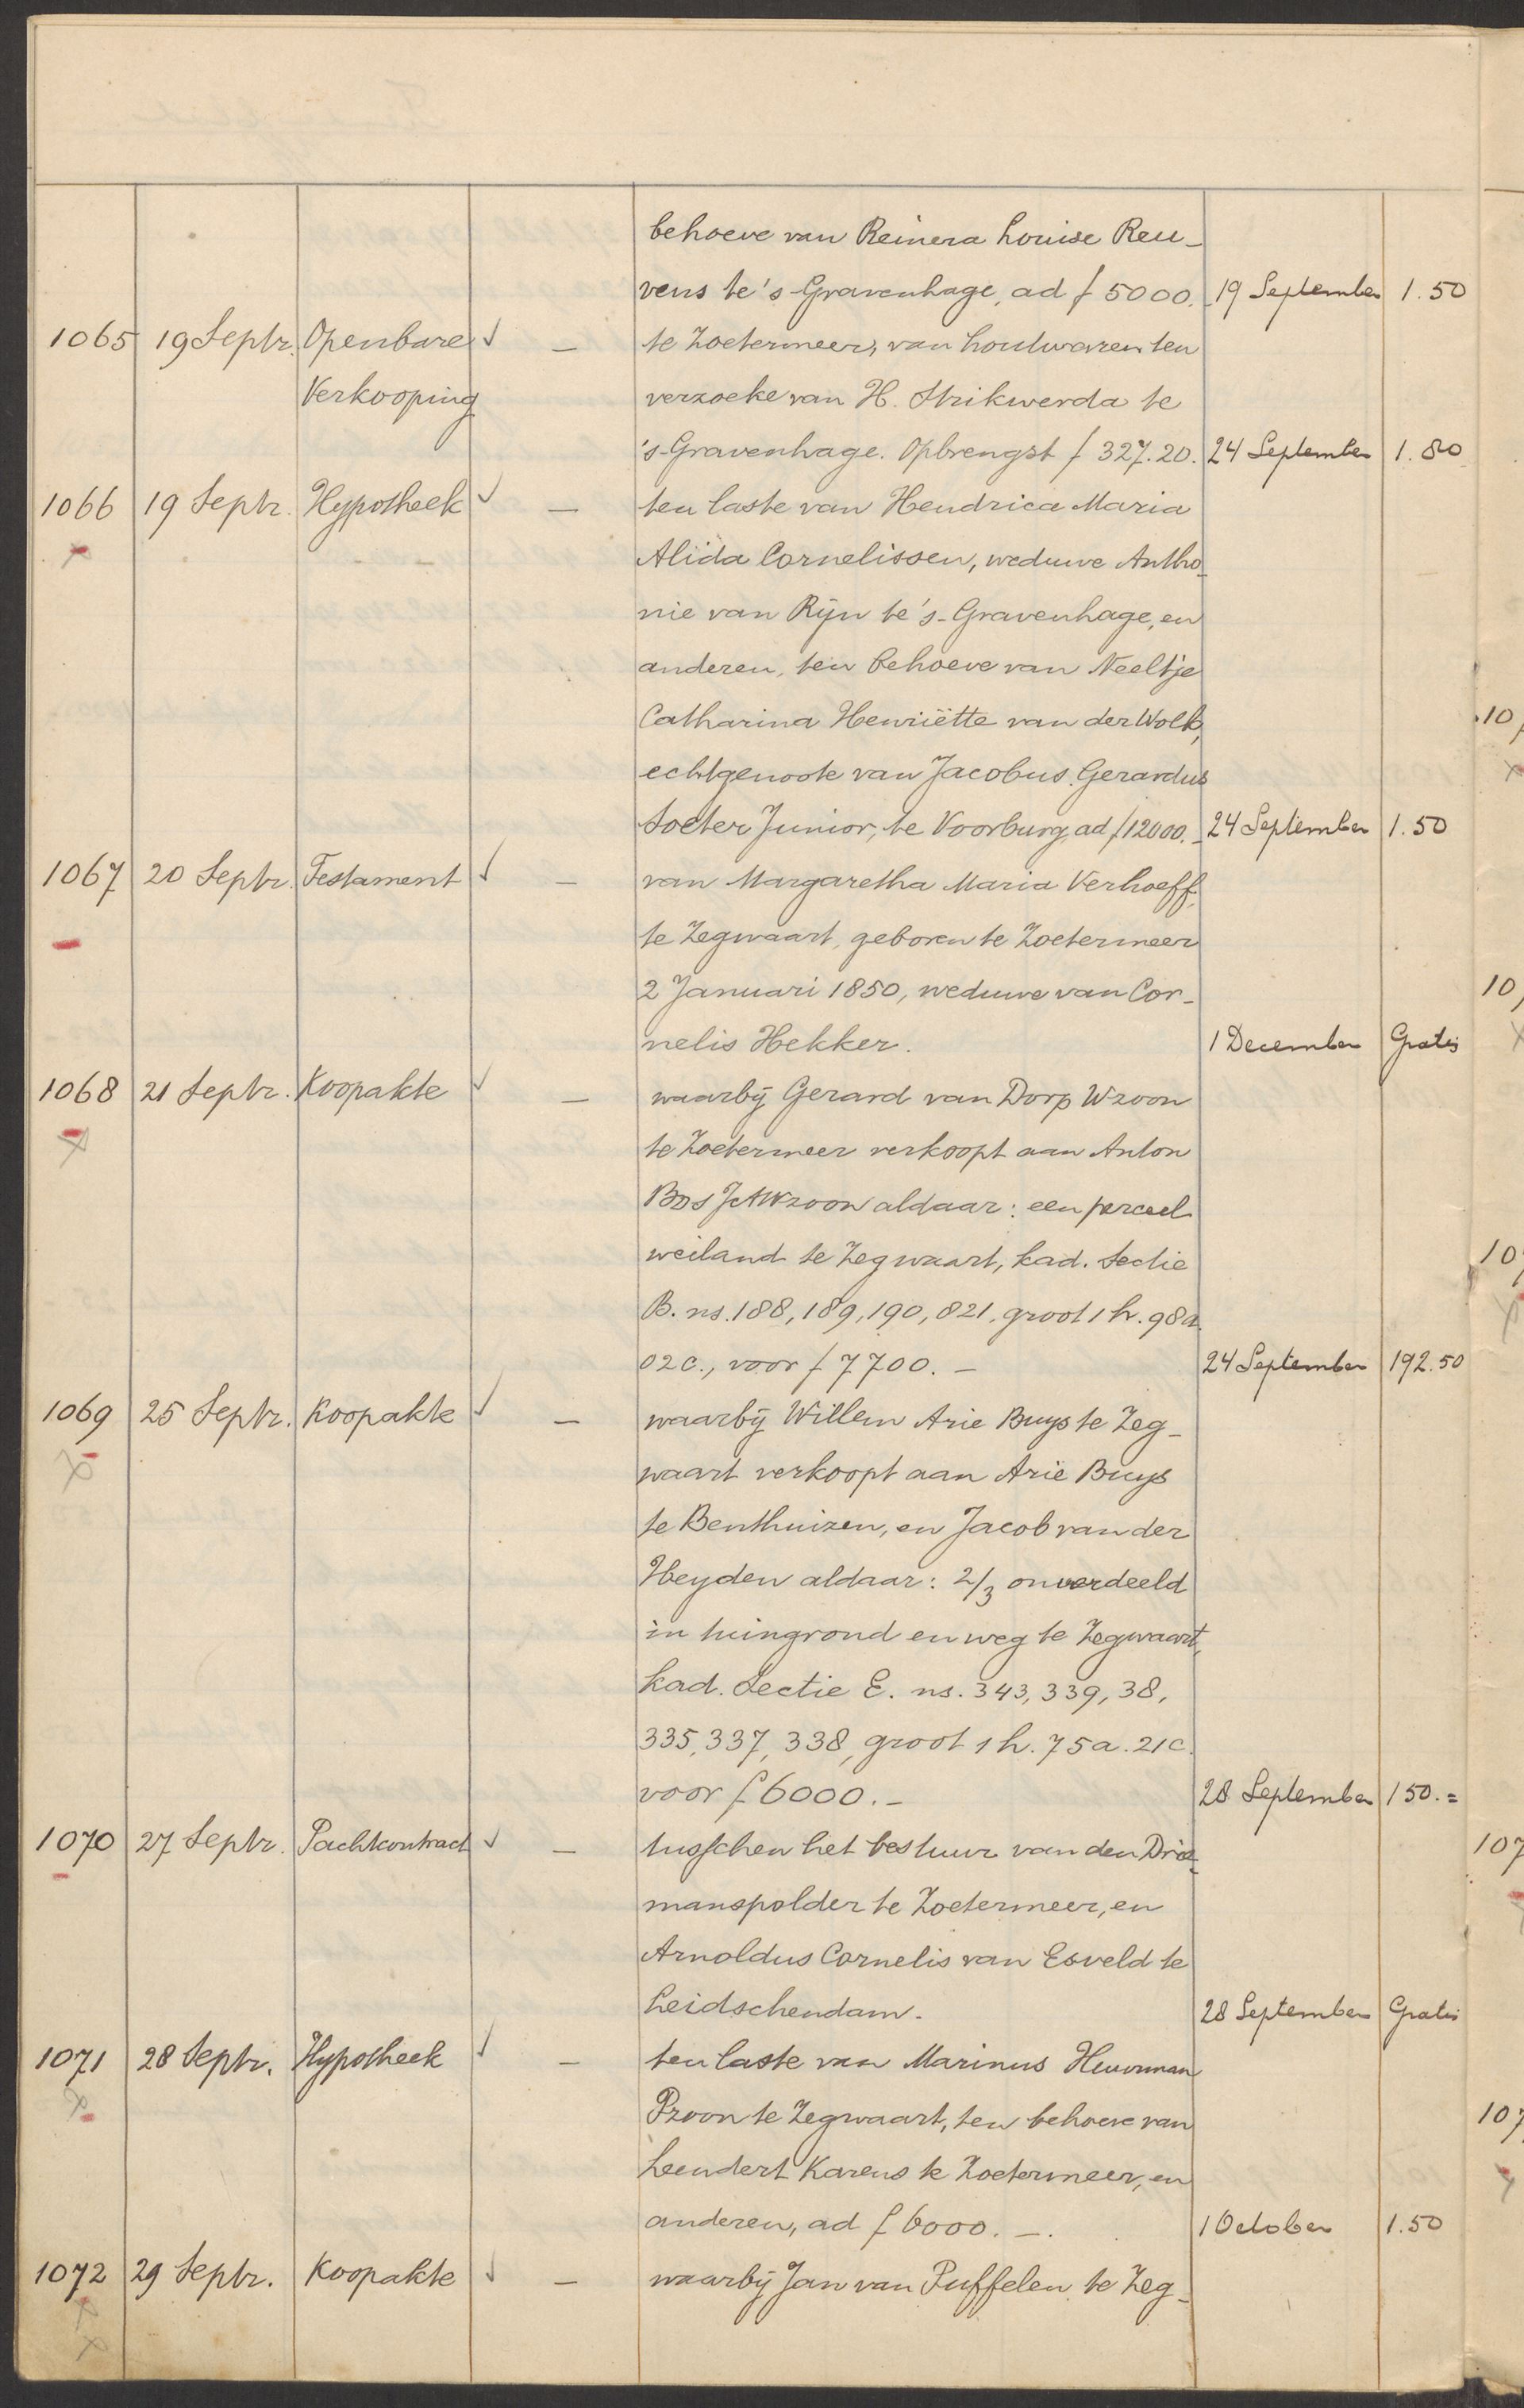 behoeve van Reinera Louise Reu-
vens te 's-Gravenhage, ad ƒ 5000.- 19 September 1.50
1065 19 Septr. Openbare √ — te Zoetermeer, van houtwaren ten
Verkooping verzoeke van H. Strikwerda te
's-Gravenhage. Opbrengst ƒ 327.20. 24 September 1.80
1066 19 Septr. Hypotheek √ — ten laste van Hendrica Maria
Alida Cornelissen, weduwe Antho-
nie van Rijn te 's-Gravenhage, en
anderen, ten behoeve van Neeltje
Catharina Henriëtte van der Wolk,
echtgenoote van Jacobus Gerardus
Soeter Junior, te Voorburg, ad ƒ 12000.- 24 September 1.50
1067 20 Septr. Testament √ — van Margaretha Maria Verhoeff,
te Zegwaart, geboren te Zoetermeer
2 Januari 1850, weduwe van Cor-
nelis Hekker. 1 December Gratis
1068 21 Septr. Koopakte √ — waarbij Gerard van Dorp Wzoon
te Zoetermeer verkoopt aan Anton
Bos JAWzoon aldaar: een perceel
weiland te Zegwaart, kad. Sectie
B. ns. 188, 189, 190, 821, groot 1 h. 98 a.
02 c., voor ƒ 7700.- 24 September 192.50
1069 25 Septr. Koopakte √ — waarbij Willem Arie Buys te Zeg-
waart verkoopt aan Arie Buys
te Benthuizen, en Jacob van der
Heyden aldaar: 2/3 onverdeeld
in tuingrond en weg te Zegwaart,
kad. Sectie E. ns. 343, 339, 38,
335, 337, 338, groot 1 h. 75 a. 21 c.
voor ƒ 6000.- 28 September 150.=
1070 27 Septr. Pachtcontract √ — tusschen het bestuur van den Drie-
manspolder te Zoetermeer, en
Arnoldus Cornelis van Esveld te
Leidschendam. 28 September Gratis
1071 28 Septr. Hypotheek √ — ten laste van Marinus Heuvman
Pzoon te Zegwaart, ten behoeve van
Leendert Karens te Zoetermeer, en
anderen, ad ƒ 6000.-. 1 October 1.50
1072 29 Septr. Koopakte √ — waarbij Jan van Puffelen te Zeg-